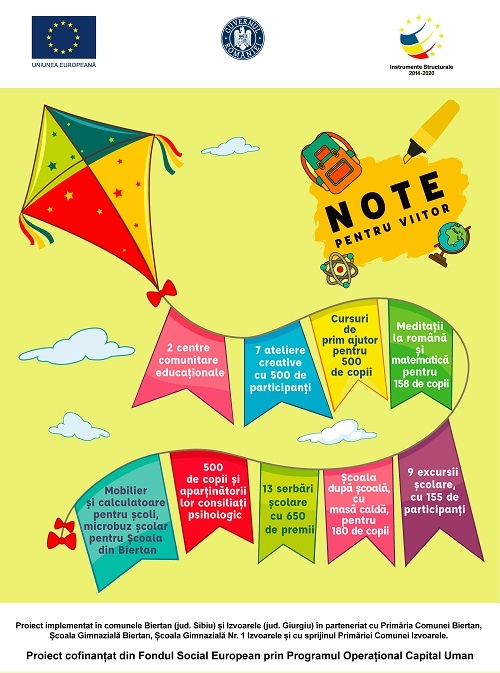 UNIUNEA EUROPEANĂ
GUVERNUL ROMÂNIEI
Instrumente Structurale
2014-2020
NOTE
PENTRU VIITOR
2 centre
comunitare
educaționale
7 ateliere
creative
cu 500 de
participanți
Cursuri
de
prim ajutor
pentru
500
de copii
Meditații
la română
și
matematică
pentru
158 de copii
Mobilier
și calculatoare
pentru școli,
microbuz școlar
pentru Școala
din Biertan
500
de copii și
aparținătorii
lor consiliați
psihologic
13 serbări
școlare
cu 650
de premii
Școala
după școală,
cu
masă caldă,
pentru
180 de copii
9 excursii
școlare,
cu 155 de
participanți
Proiect implementat în comunele Biertan (jud. Sibiu) și Izvoarele (jud. Giurgiu) în parteneriat cu Primăria Comunei Biertan,
Școala Gimnazială Biertan, Școala Gimnazială Nr. 1 Izvoarele și cu sprijinul Primăriei Comunei Izvoarele.
Proiect cofinanțat din Fondul Social European prin Programul Operațional Capital Uman